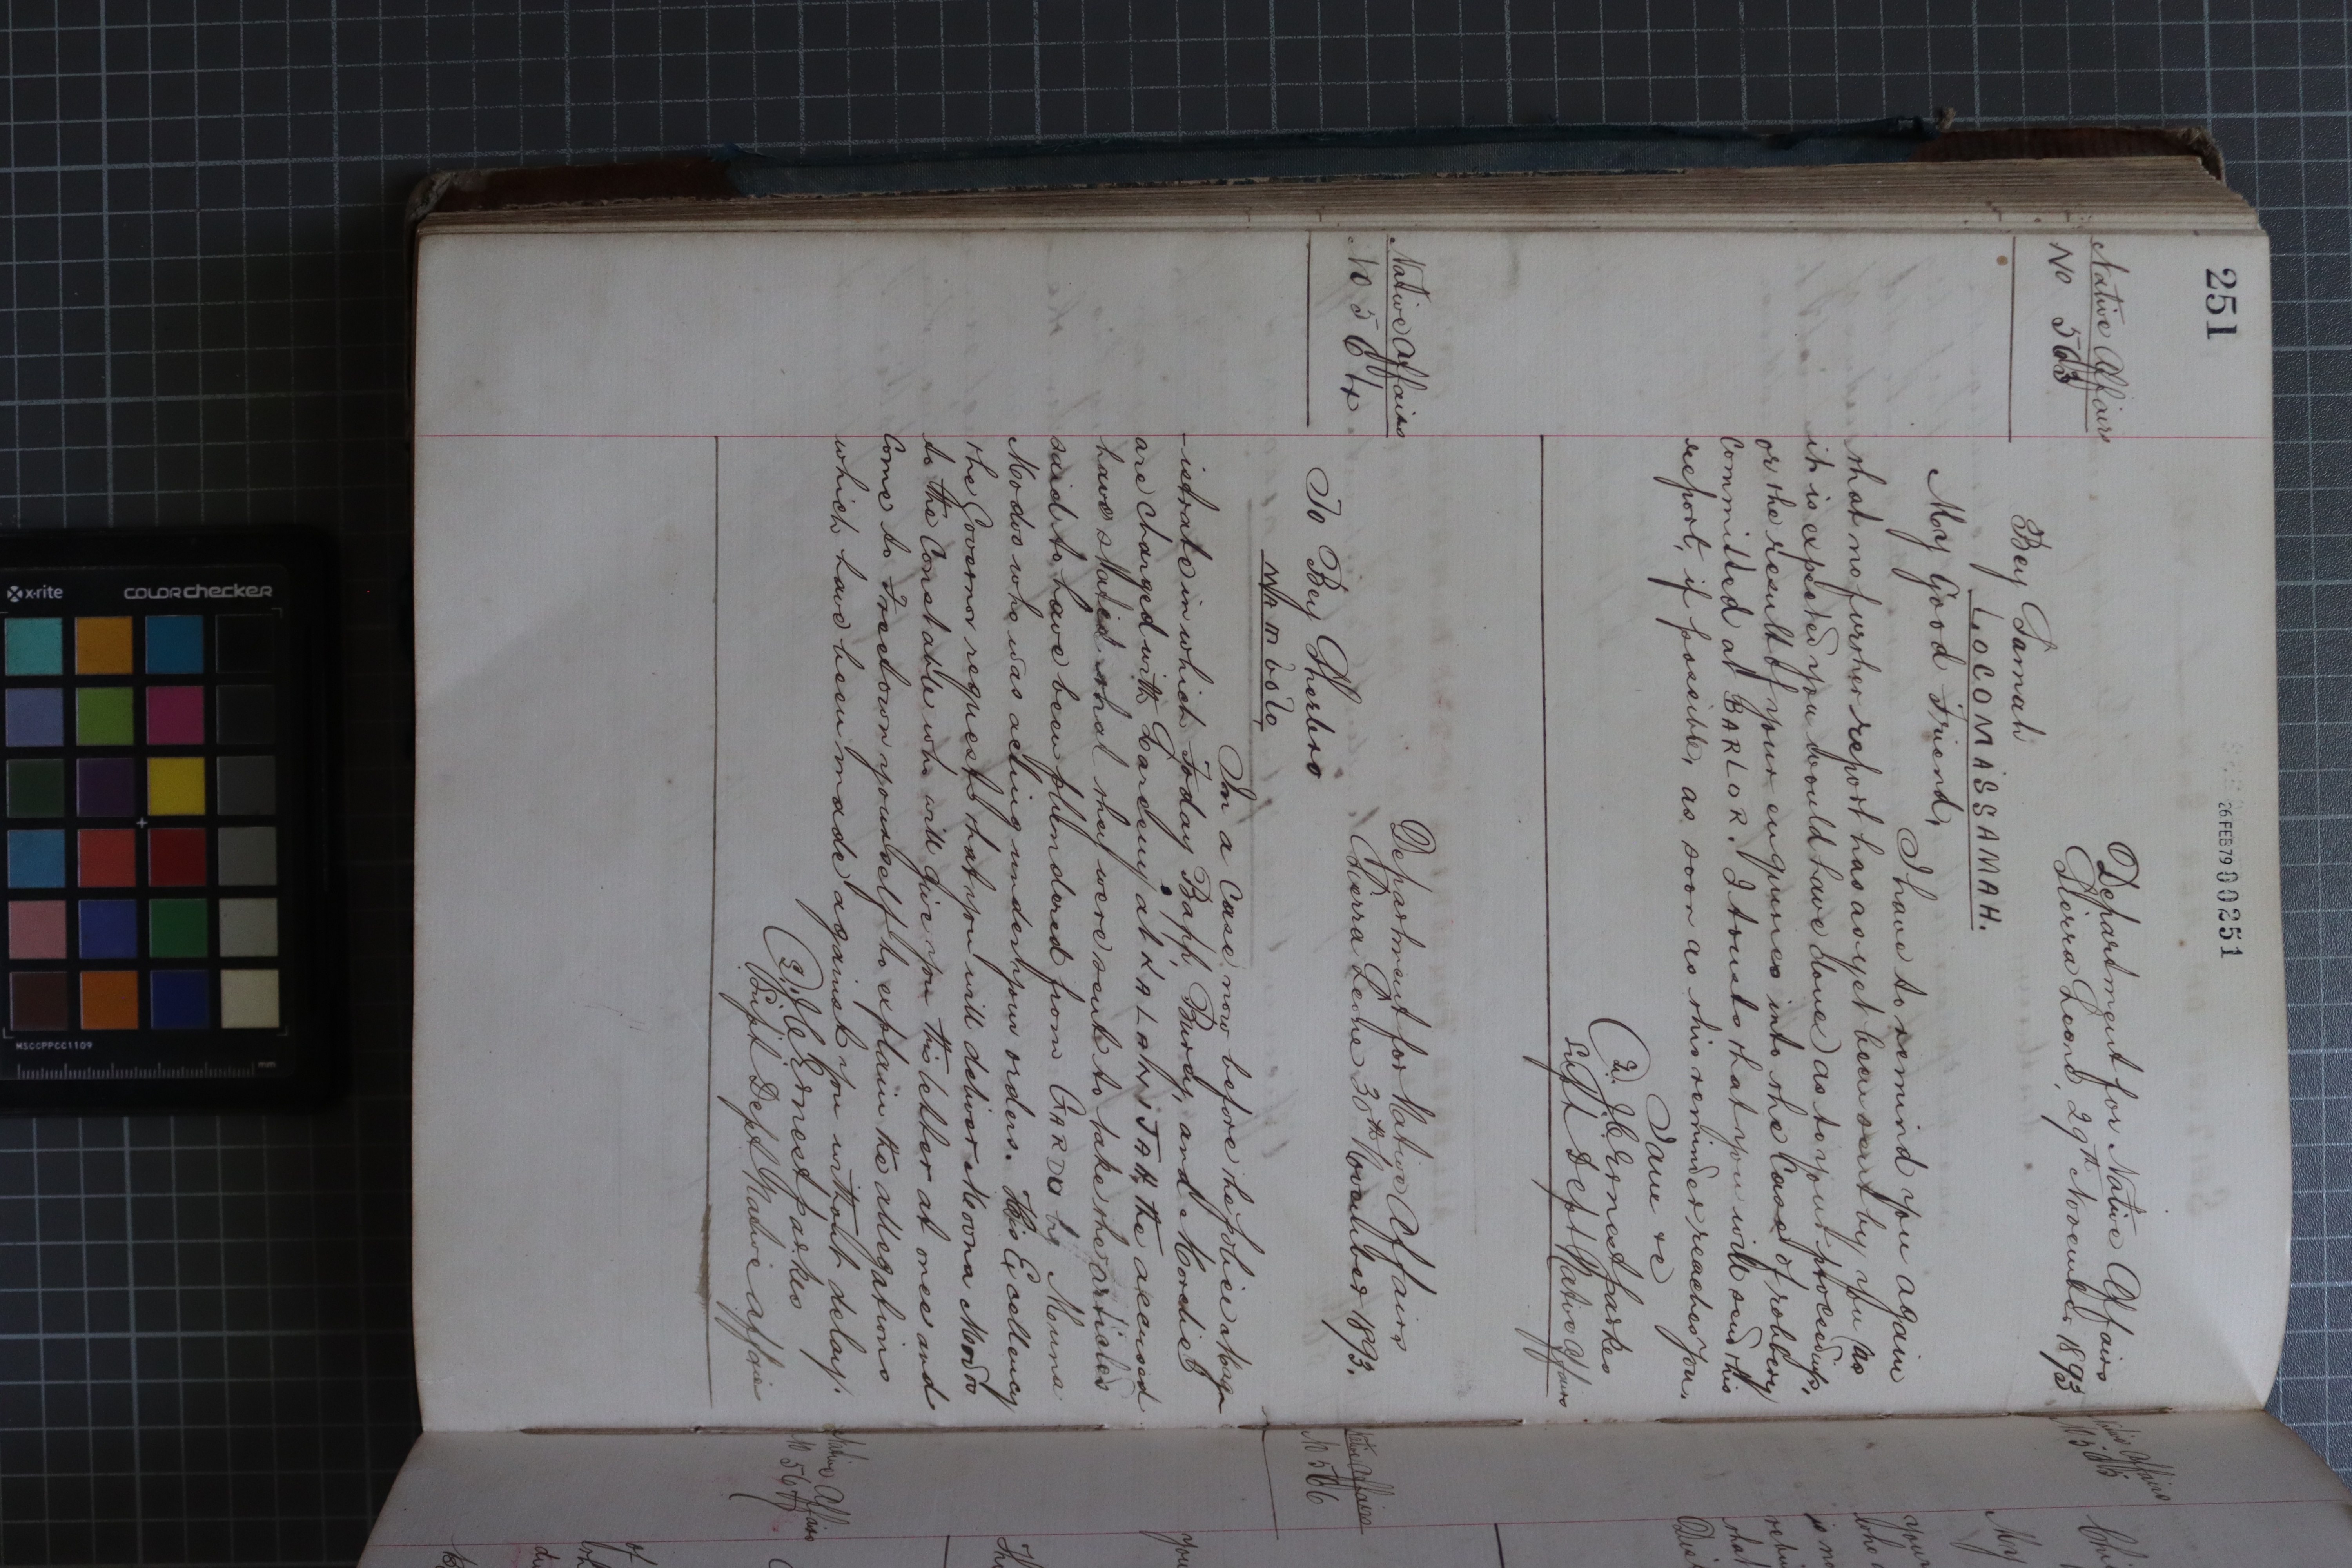 251
26 FEB 79 000251
Native Affairs
No 563
Department for Native Affairs
Sierra Leone, 29th November 1893
Bey Samah
LOCOMASSAMAH.
My Good Friend,
I have to remind you again
that no further report has as yet been sent by you as
it is expected you would have done as to your proceedings,
or the result of your enquiries into the Case of robbery
Committed at BARLOR. I trust that you will send this
report, if possible, as soon as this reminder reaches you.
I am &c
J. C. Ernest Parkes
Supt Dept Native Affairs
Native Affairs
No 564
Department for Native Affairs
Sierra Leone 30th November 1893.
To Bey Sherbro
In a Case now before the police Mag-
-istrate in which Today Bapp, Burey, and Morchet
are charged with Larceny at the accused
have stated that they were sent to take the articles
said to have been plundered from GARDO by Mouna
Modoo who was acting under your orders. His Excellency
the Governor requests that you will deliver Moona Modoo
to the Constable who will give you this letter at once and
Come to Freetown yourself to explain the allegations
which have been made against you without delay.
J. C. Ernest Parkes
Supt Dept Native Affairs
Native Affairs
No 566
Native Affairs
My
your
is no
that
you
of